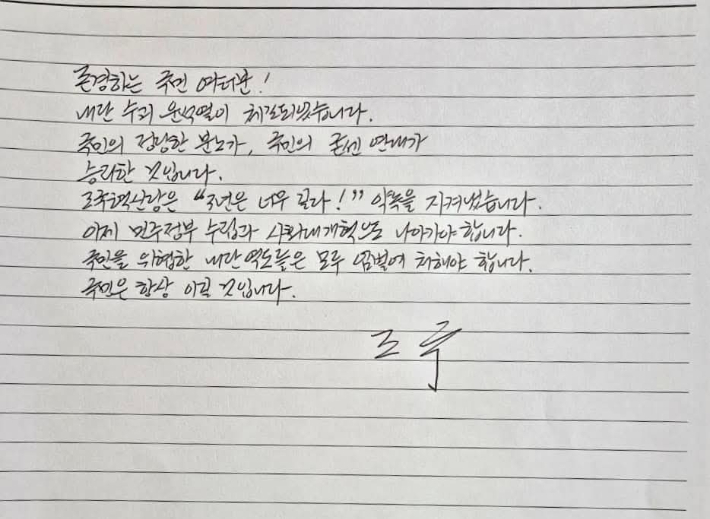 존경하는 국민 여러분!
내란 수괴 윤석열이 체포되었습니다.
국민의 정당한 분노가, 국민의 굳센 연대가
승리한 것입니다.
조국혁신당은 "3년은 너무 길다!" 약속을 지켜냈습니다.
이제 민주정부 수립과 사회대개혁으로 나아가야 합니다.
국민을 위협한 내란 역도들은 모두 엄벌에 처해야 합니다.
국민은 항상 이길 것입니다.
조 국